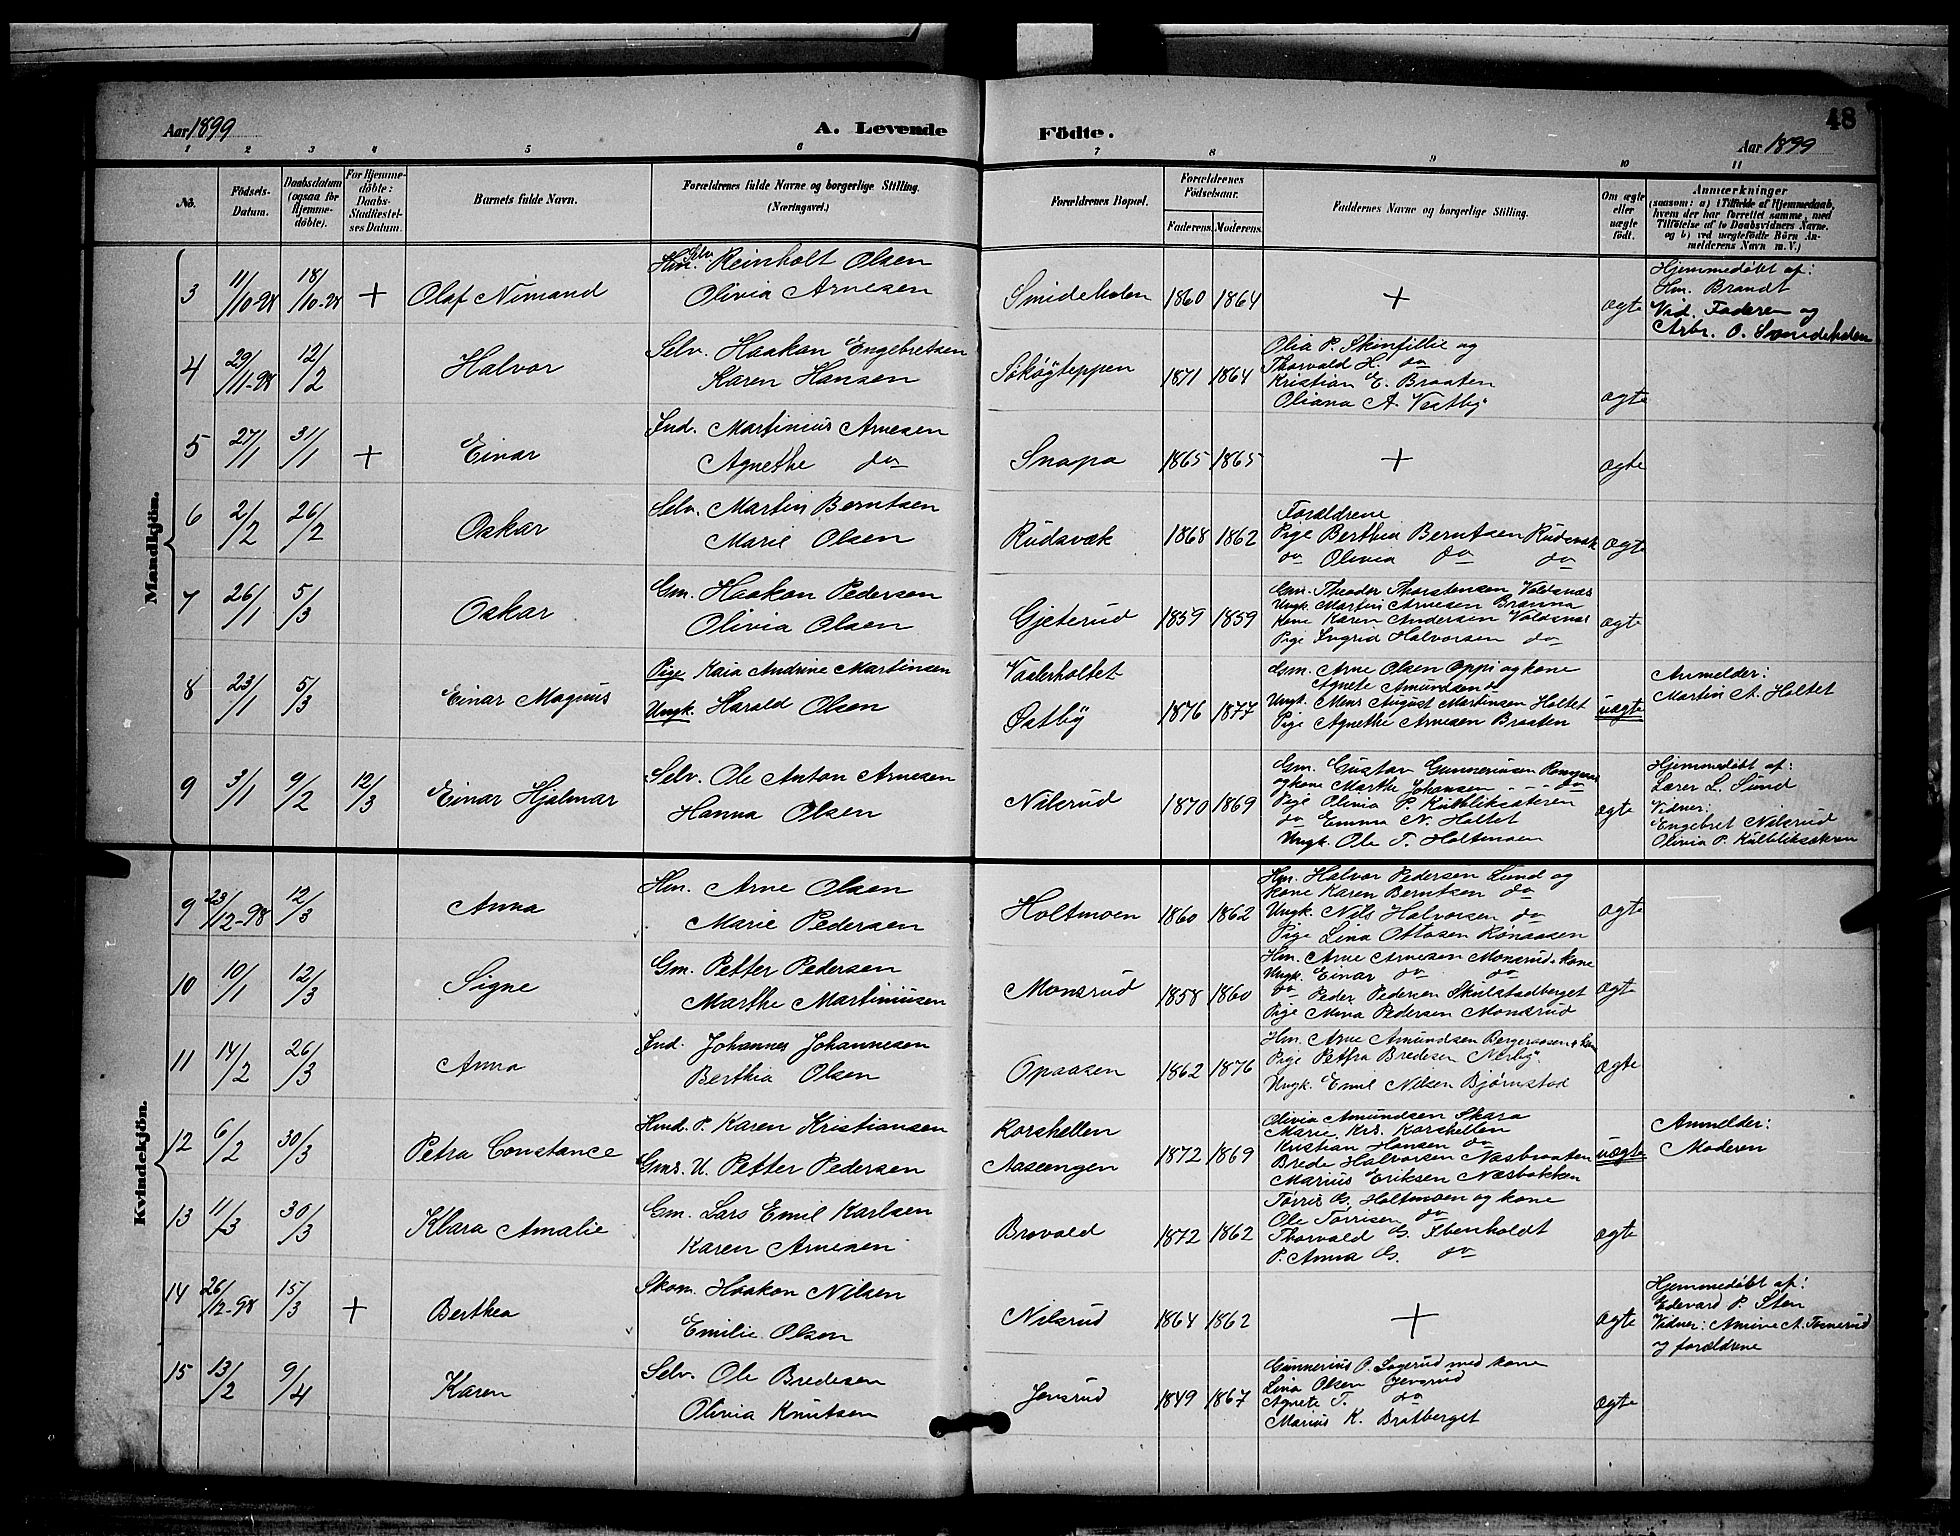 48
Aar 1899 A. Levende Födte. Aar 1899
1 2 3 4 5 6 7 8 9 10 11
No.
Födsels-
Datum.
Daabsdatum
(ogsaa for
Hjemme-
döbte).
For Hjemme-
döbte:
Daabs-
Stadfæstel-
ses Datum.
Barnets fulde Navn.
Forældrenes fulde Navne og borgerlige Stilling.
(Næringsvei.)
Forældrenes Bopæl.
Forældrenes
Födselsaar.
Faderens. Moderens.
Faddernes Navne og borgerlige Stilling.
Om ægte
eller
uægte
födt.
Anmærkninger
(saasom: a) i Tilfælde af Hjemmedaab,
hvem der har forrettet samme, med
Tilföielse af to Daabsvidners Navne.
og b) ved uægtefödte Börn An-
melderens Navn m. V.)
Mandkjön.
3 11/10-98 18/10-98 + Olaf Nimand
Hm. Selv. Reinholt Olsen
Olivia Arnesen
Smideholen 1860 1864 + ægte
Hjemmedöbt af:
Hm. Brandt
Vid. Faderen og
Arbr. O. Smideholen
4 29/11-98 12/2 Halvor
Selv. Haakon Engebretsen
Karen Hansen
Sökögteppen 1871 1864
Olia P. Skinfille og
Thorvald H. do
Kristian E. Braaten
Oliana A. Vestby
ægte
5 27/1 31/1 + Einar
Ind. Martinius Arnesen
Agnethe do
Snapa 1865 1865 + ægte
6 2/2 26/2 Oskar
Selv. Martin Berntsen
Marie Olsen
Rudsvæk 1868 1862
Forældrene
Pige Berthea Berntsen Rudsvæk
do Olivia do do
ægte
7 26/1 5/3 Oskar
Gm. Haakon Pedersen
Olivia Olsen
Gjeterud 1859 1859
Gm. Theodor Thorstensen Voldsnæs
Ungk. Martin Arnesen Branna
Kone Karen Andersen Voldsnæs
Pige Ingrid Halvorsen do
ægte
8 23/1 5/3 Einar Magnus
Pige Kaia Andrine Martinsen
Ungk. Harald Olsen
Vaalerholtet
Østby
1876 1877
Gm. Arne Olsen Oppi og kone
Agnete Amundsen do
Ungk. Mens August Martinsen Holtet
Pige Agnethe Arnesen Braaten
uægte
Anmelder:
Martin A. Holtet
9 3/1 9/2 12/3 Einar Hjalmar
Selv. Ole Anton Arnesen
Hanna Olsen
Nilsrud 1870 1869
Gm. Gustav Gunneriusen
og kone Marthe Johansen do
Pige Olivia P. Kulbliksæteren
do Emma N. Holtet
Ungk. Ole T. Holtmoen
ægte
Hjemmedöbt af:
Lærer L. Sund
Vidner:
Engebret Nilsrud
Olivia P. Kulbliksækren
Kvindekjön.
9 23/12-98 12/3 Anna
Hm. Arne Olsen
Marie Pedersen
Holtmoen 1860 1862
Hm. Halvor Pedersen Lund og
Kone Karen Berntsen do
Ungk. Nils Halvorsen do
Pige Lina Ottosen Rönaasen
ægte
10 10/1 12/3 Signe
Gm. Petter Pedersen
Marthe Martiniusen
Monsrud 1858 1860
Hm. Arne Arnesen Monsrud + kone
Ungk. Einar do do
do Peder Pedersen Skulstadberget
Pige Mina Pedersen Monsrud
ægte
11 14/2 26/3 Anna
Ind. Johannes Johannesen
Berthia Olsen
Opsaasen 1862 1876
Hm. Arne Amundsen Bergersaasen + kone
Pige Petra Bredesen Nerby
Ungk. Emil Nilsen Bjørnstad
ægte
12 6/2 30/3 Petra Constance
Hmd. P. Karen Kristiansen
Gms. U. Petter Pedersen
Korshellen
Aaseengen
1872 1869
Olivia Amundsen Skara
Marie Krs. Korshellen
Kristian Hansen do
Brede Halvorsen Næsbraaten
Marius Eriksen Næsbakken
uægte
Anmelder:
Moderen
13 11/3 30/3 Klara Amalie
Gm. Lars Emil Karlsen
Karen Arnesen
Brovold 1872 1862
Törris G. Holtmoen og kone
Ole Törrisen do
Thorvald G. Ibenholdt
P. Anna G. do
ægte
14 26/12-98 15/3 + Berthea
Skom. Haakon Nilsen
Emilie Olsen
Nilsrud 1864 1862 + ægte
Hjemmedöbt af:
Edevard P. Sten
Vidner: Amine A. Tomerud
og forældrene
15 13/2 9/4 Karen
Selv. Ole Bredesen
Olivia Knutsen
Jensrud 1849 1867
Gunnerius P. Sagerud med kone
Lina Olsen Jensrud
Agnete T. do
Marius K. Bratberget
ægte